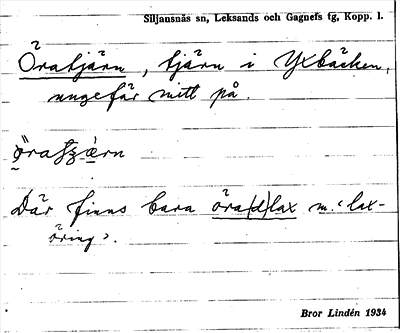 Siljansnäs sn, Leksands och Gagnefs tg, Kopp. l.
Öratjärn, tjärn i Yxbäcken,
ungefär mitt på.
Där finns bara öra(d)lax m. ‘lax-
öring’.
Bror Lindén 1934